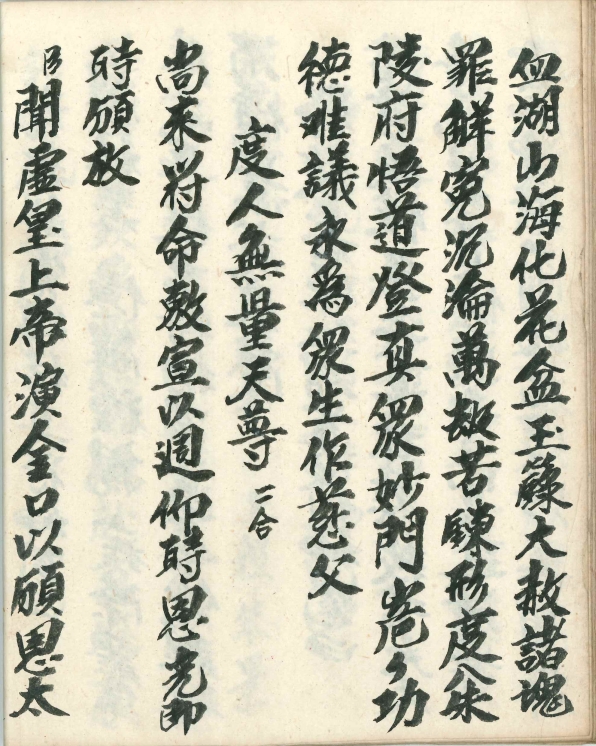 血湖山海化花盆玉籙大赦諸魂
罪解冤沉淪萬劫苦鍊形度人朱
陵府悟道登真眾妙門巍々功
德难議永為眾生作慈父
度人無量天尊 一合
尚來符命敷宣以週仰時恩光即
時頒放
臣聞虛皇上帝演金口以頒恩太